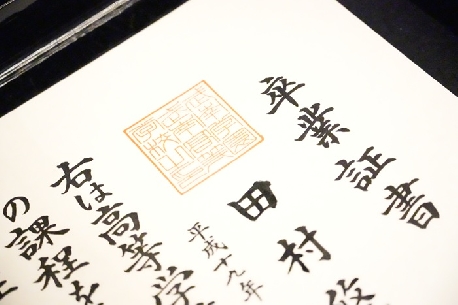 卒業証書
田村
平成十九年
右は高等学
の課程を